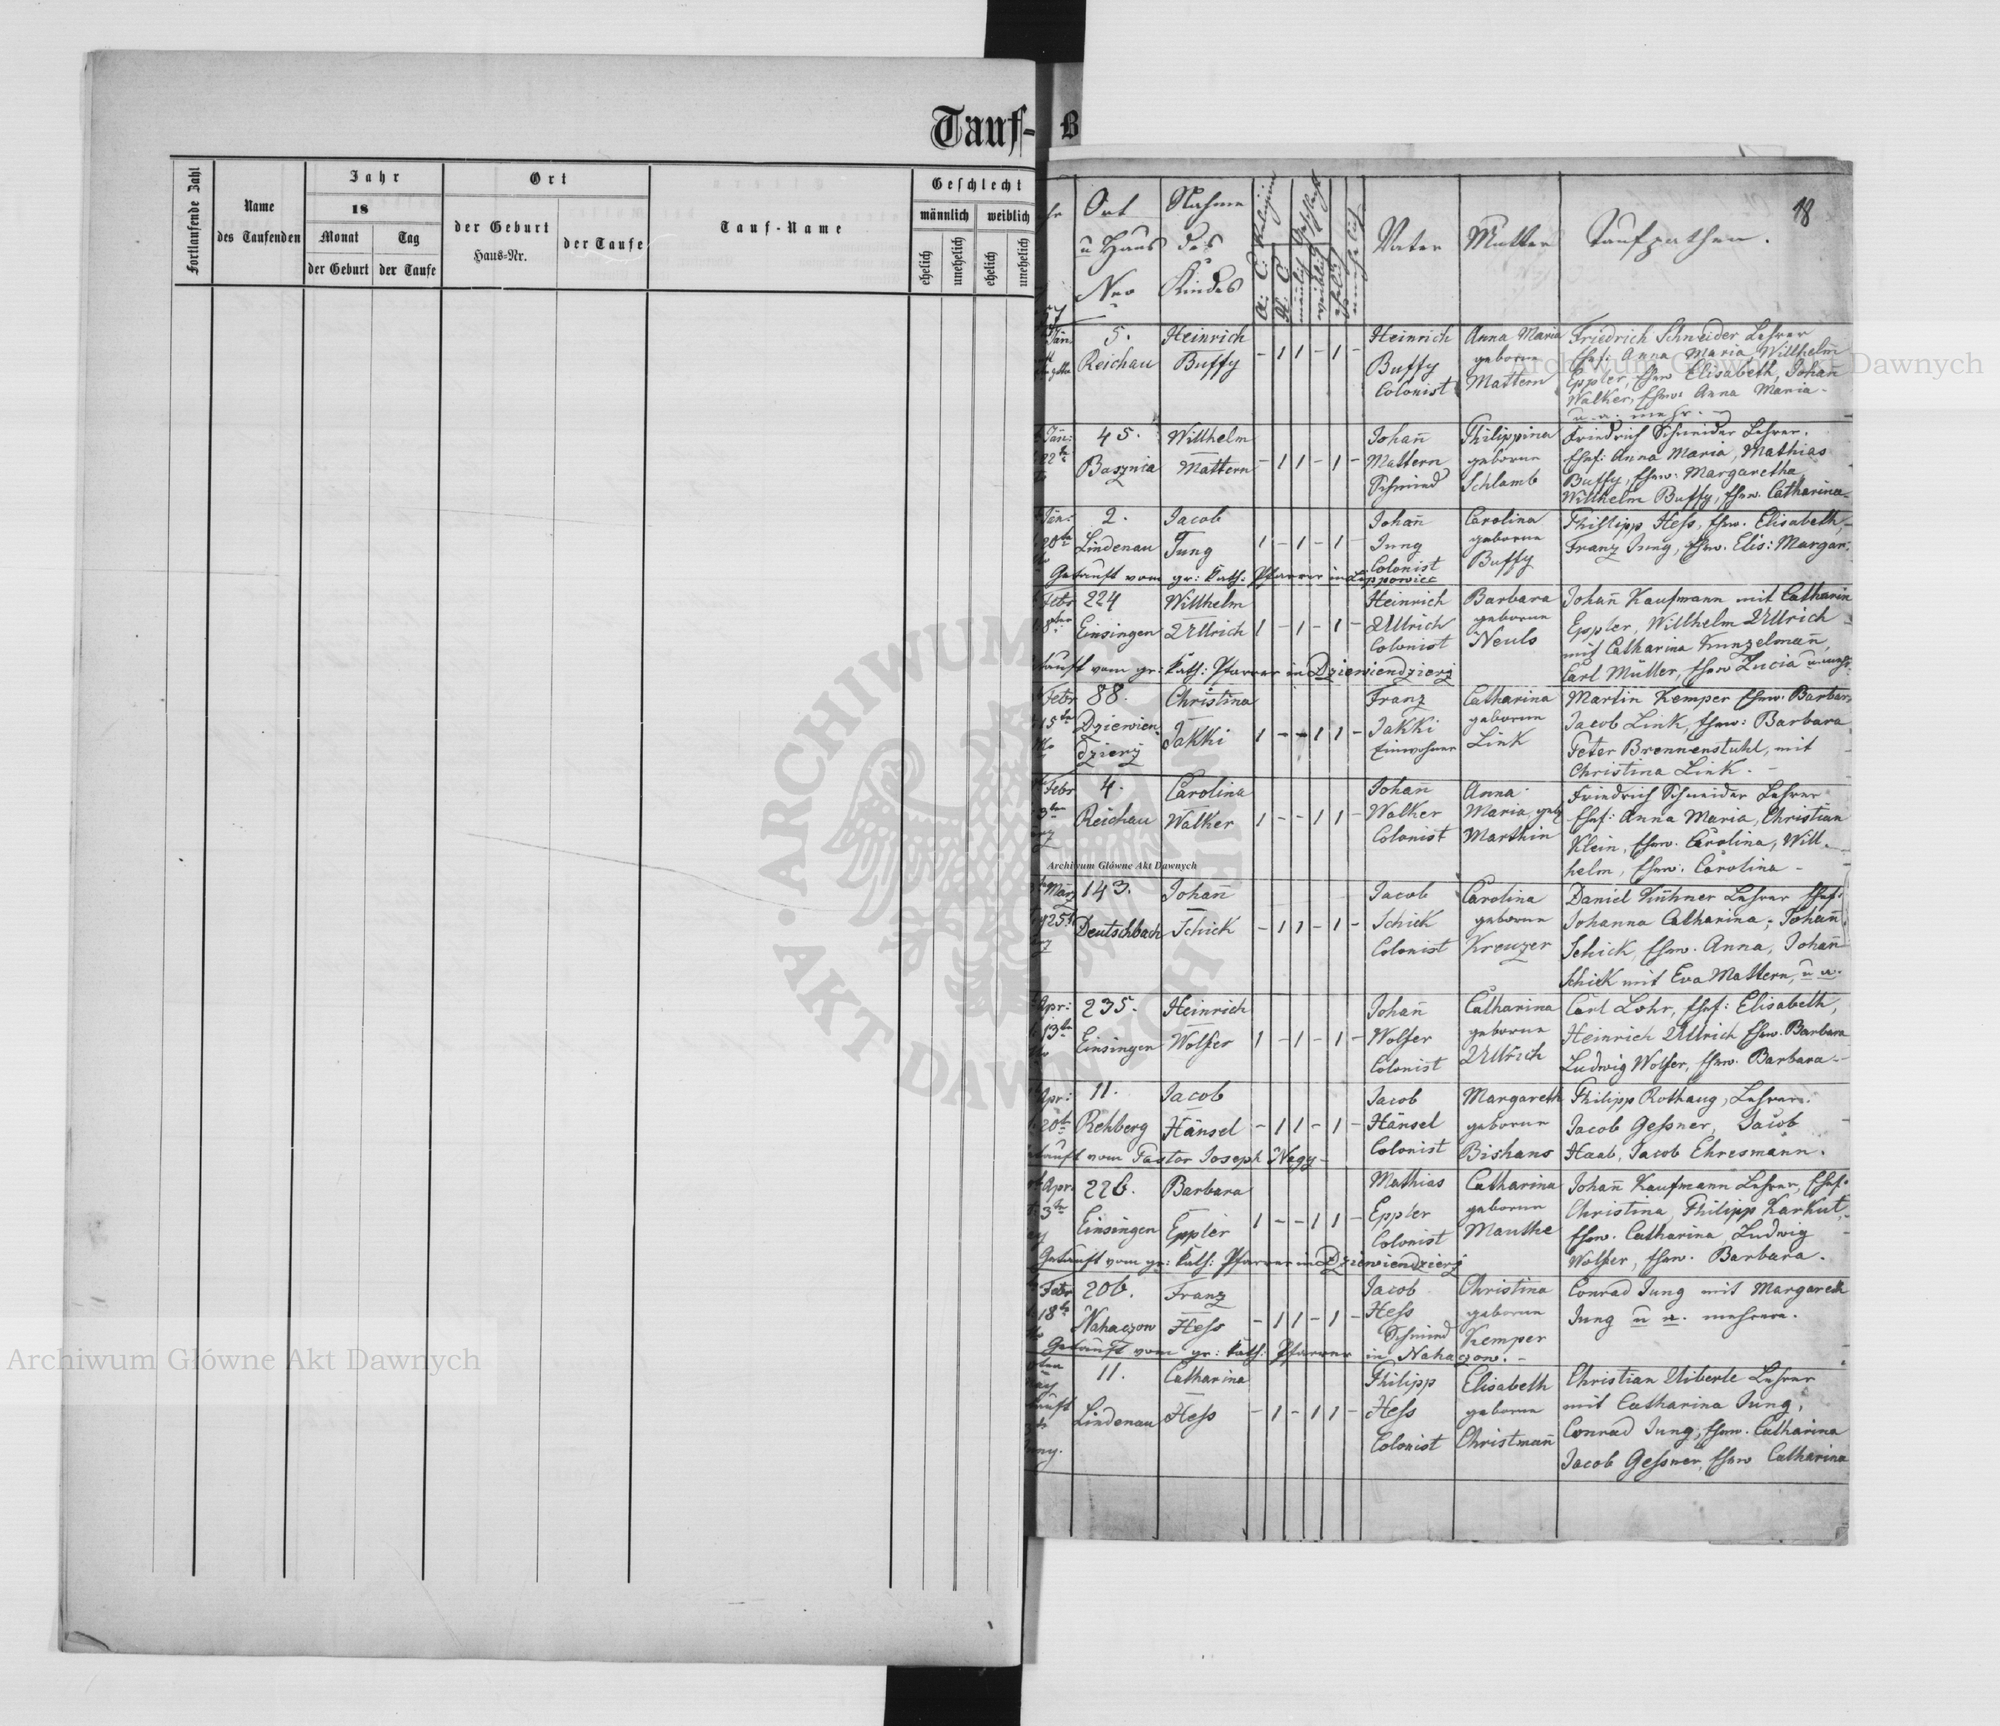 Tauf-
B
Fortlaufende Zahl
Name
des Taufenden
Jahr
18
Monat
Tag
der Geburt
der Taufe
Ort
der Geburt
Haus-Nr.
der Taufe
Tauf-Name
Geschlecht
männlich
weiblich
ehelich
unehelich
ehelich
unehelich
18
Ort
u Haus
Nro
Nahme
des
Kindes
Vater
Mutter
Taufpathen.
5. Heinrich Heinrich Anna Maria Friedrich Schneider Lehrer
Reichau Buffy - 1 1 - 1 - Buffy geborne Ehef: Anna Maria, Willhelm
Colonist Mattern Eppler, Ehew Elisabeth, Johan
Walker, Ehew: Anna Maria
u. a. mehr.
Jän: 45. Willhelm Johañ Philippina Friedrich Schneider Lehrer.
22te Basznia Mattern - 1 1 - 1 - Mattern geborne Ehef: Anna Maria, Mathias
Schmied Schlamb Buffy, Ehew: Margaretha
Willhelm Buffy, Ehew. Catharina
Jän: 2. Jacob Johañ Carolina Philipp Heß, Ehew. Elisabeth,
20te Lindenau Jung 1 - 1 - 1 - Jung geborne Franz Jung, Ehew. Elis: Margar:
Colonist Buffy
Getauft vom gr: kath: Pfarrer in Lippowiec
Febr 224 Willhelm Heinrich Barbara Johañ Kaufmann mit Catharin
Einsingen Ullrich 1 - 1 - 1 - Ullrich geborne Eppler, Willhelm Ullrich
Colonist Neuls mit Catharina Kunzelmañ,
tauft vom gr: kath: Pfarrer in Dziewiendzierz Carl Müller, Ehew Lucia
Febr 88. Christina Franz Catharina Martin Kemper Ehew: Barbar
15te Dziewien- Jakki 1 - - 1 1 - Jakki geborne Jacob Link, Ehew: Barbara
dzierz Einwohner Link Peter Brennenstuhl, mit
Christina Link. -
Febr 4. Carolina Johañ Anna Friedrich Schneider Lehrer
3te Reichau Walker 1 - - 1 1 - Walker Maria, geb Ehef: Anna Maria, Christian
Colonist Marthin Klein, Ehew. Carolina, Will-
helm, Ehew: Carolina -
Archiwum Główne Akt Dawnych
März 143. Johañ Jacob Carolina Daniel Kühner Lehrer Ehef:
25t Deutschbach Schick - 1 1 - 1 - Schick geborne Johanna Catharina; Johañ
Colonist Kreuzer Schick, Ehew. Anna, Johañ
Schick mit Eva Mattern, u a.
Apr: 235. Heinrich Johañ Catharina Carl Lohr, Ehef: Elisabeth,
13te Einsingen Wolfer 1 - 1 - 1 - Wolfer geborne Heinrich Ullrich Ehew. Barbara
Colonist Ullrich Ludwig Wolfer, Ehew. Barbara -
Apr: 11. Jacob Jacob Margareth Philipp Rothaug, Lehrer.
20te Rehberg Hänsel - 1 1 - 1 - Hänsel geborne Jacob Geßner, Jacob
tauft vom Pastor Joseph Nagy - Colonist Bishans Haab, Jacob Ehresmann.
Apr: 226. Barbara Mathias Catharina Johañ Kaufmann Lehrer, Ehef:
3te Einsingen Eppler 1 - - 1 1 - Eppler geborne Christina, Philipp Karhut,
Colonist Mauthe Ehew. Catharina, Ludwig
Getauft vom gr: kath: Pfarrer in Dziewiendzierz Wolfer, Ehew. Barbara.
Febr 206. Franz Jacob Christina Conrad Jung mit Margareth
18te Nahaczow Heß - 1 1 - 1 - Hess geborne Jung u a. mehrere.
Schmied Kemper
Getauft vom gr: kath: Pfarrer in Nahaczow. -
11. Catharina Philipp Elisabeth Christian Uiberle Lehrer
Lindenau Heß - 1 - 1 1 - Heß geborne mit Catharina Jung,
Colonist Christmañ Conrad Jung, Ehew. Catharina
Jacob Geßner, Ehew Catharina
Archiwum Główne Akt Dawnych
Archiwum Główne Akt Dawnych
ARCHIWUM GŁÓWNE AKT DAWNYCH